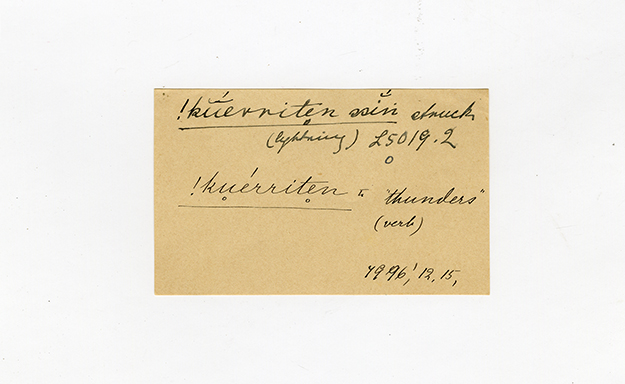 !kŭérriten ssin̆ struck
(lightning) L5019.2
!kuérriten "thunders"
(verb)
7996', 12, 15,